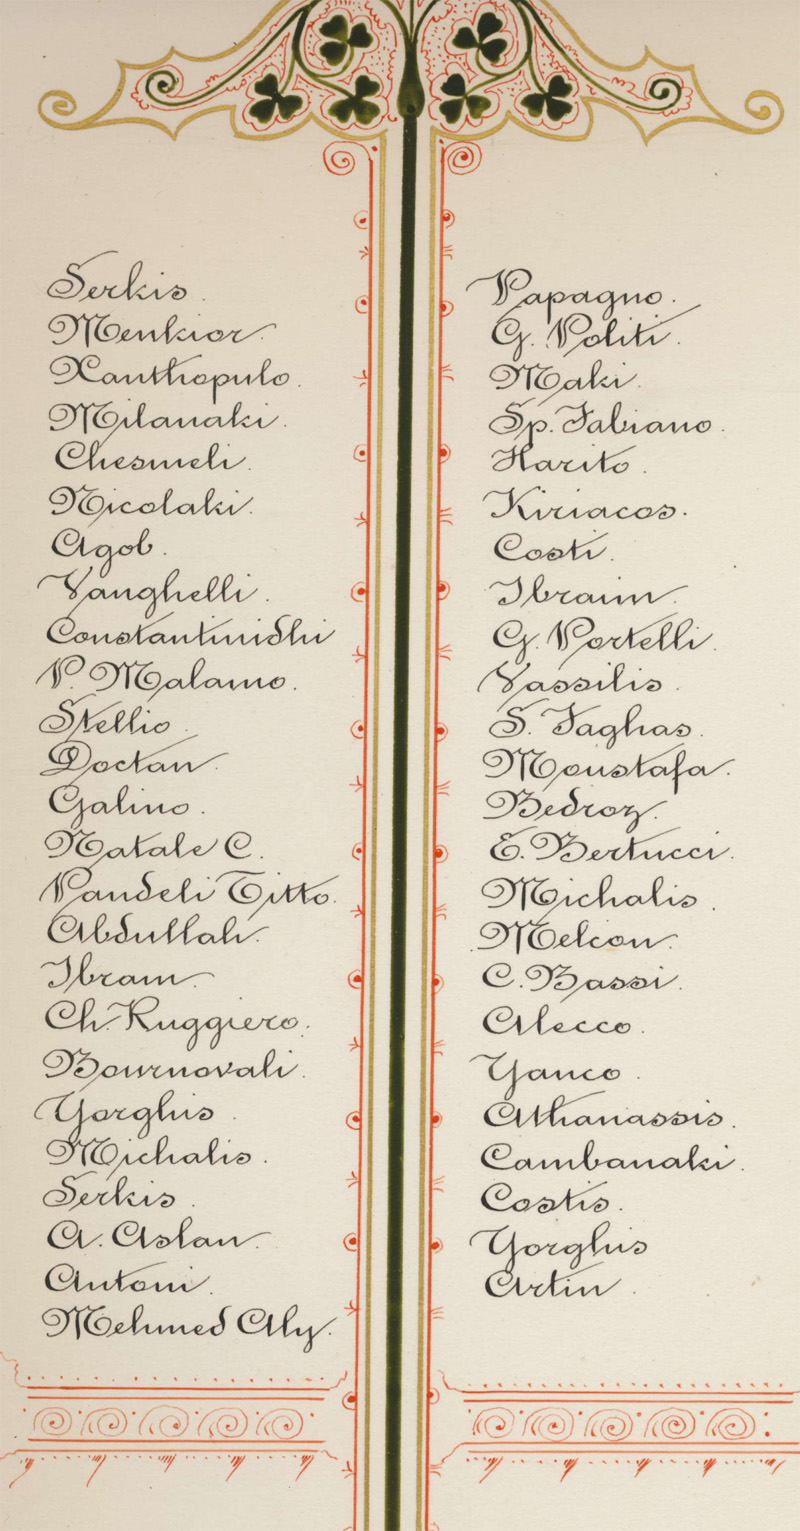 Serkis.
Menkior.
Xanthopulo.
Milanaki.
Chesmeli.
Nicolaki.
Agob.
Vanghelli.
Constantinidhi
P. Malamo.
Stellio.
Doctan.
Galino.
Natale C.
Pandeli Titto.
Abdullah.
Ibram.
Ch. Ruggiero.
Bournovali.
Yorghis.
Michalis.
Serkis.
A. Aslan.
Antoni.
Mehmed Aly.
Papagno.
G. Politi.
Maki.
Sp. Fabiano.
Harito.
Kiriacos.
Costi.
Ibraim.
G. Portelli.
Vassilis.
S. Faghas.
Moustafa.
Bedroz.
E. Bertucci.
Michalis.
Melcon.
C. Bassi.
Alecco.
Yanco.
Athanassis.
Cambanaki.
Costis.
Yorghis
Artin.